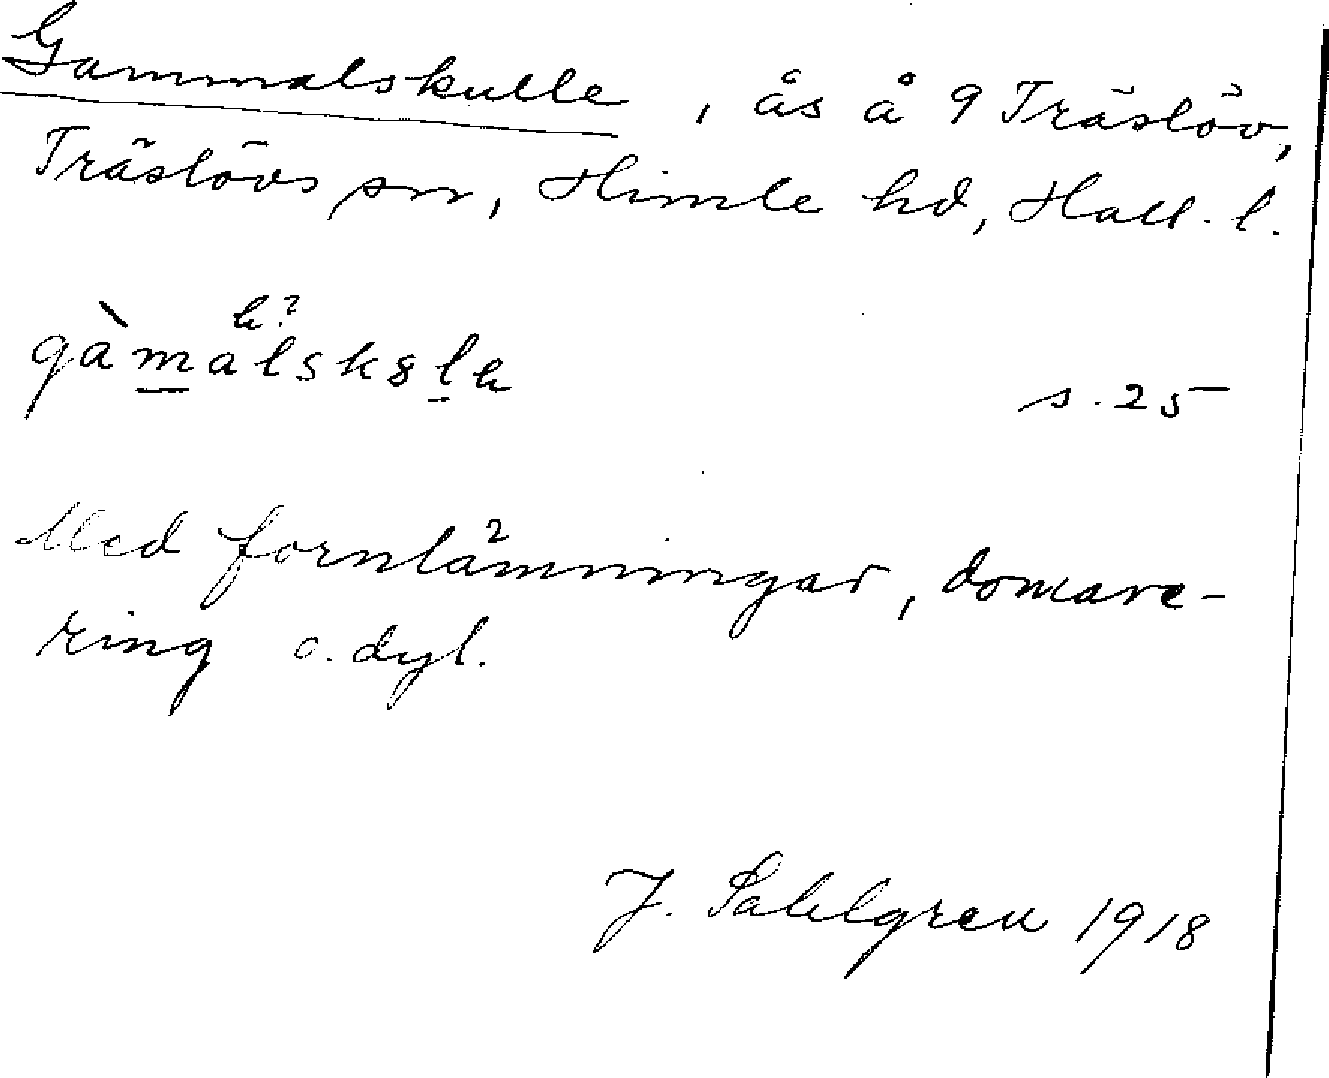 Gammalskulle, ås å 9 Träslöv,
Träslövs sn, Himle hd, Hall. l.
h?
gàmalskslh
s. 25
Med fornlämningar, domare-
ring o. dyl.
J. Sahlgren 1918